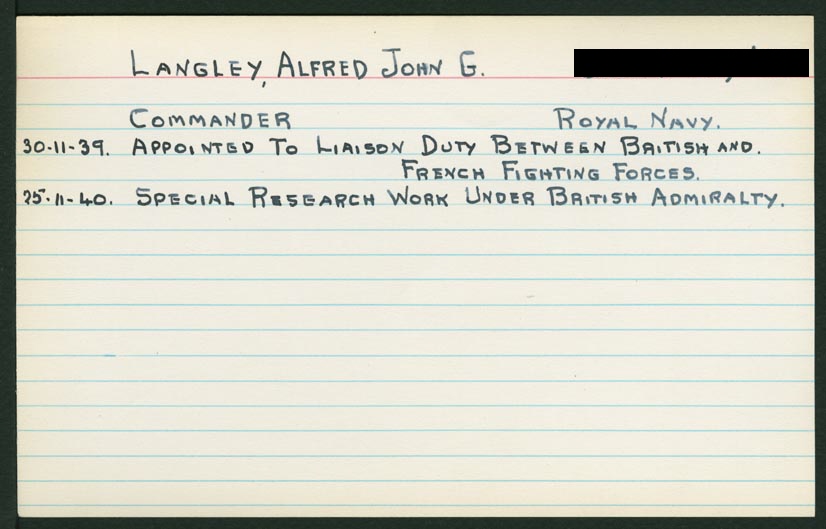 LANGLEY, ALFRED JOHN G.
COMMANDER ROYAL NAVY.
30-11-39. APPOINTED TO LIAISON DUTY BETWEEN BRITISH AND.
FRENCH FIGHTING FORCES.
25-11-40. SPECIAL RESEARCH WORK UNDER BRITISH ADMIRALTY.